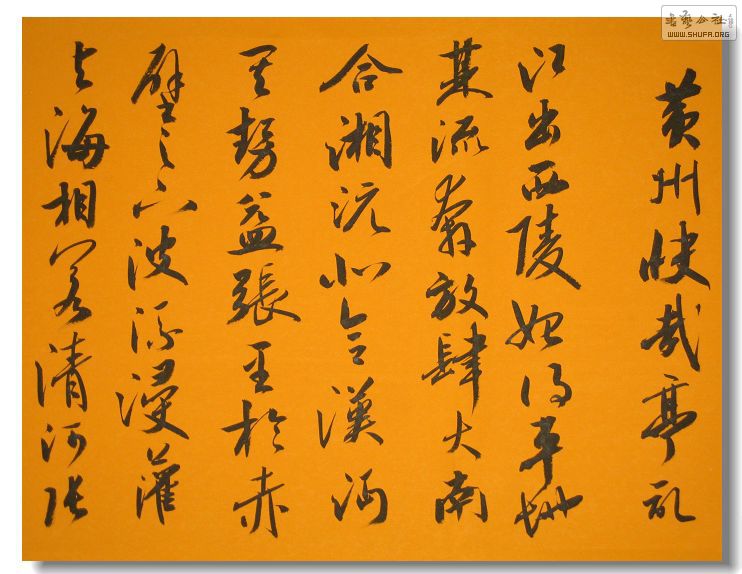 書藝公社
WWW.SHUFA.ORG
黄州快哉亭記
江出西陵始得平地
其流奔放肆大南
合湘沅北合漢沔
其勢益張至於赤
壁之下波流浸灌
与海相若清河張